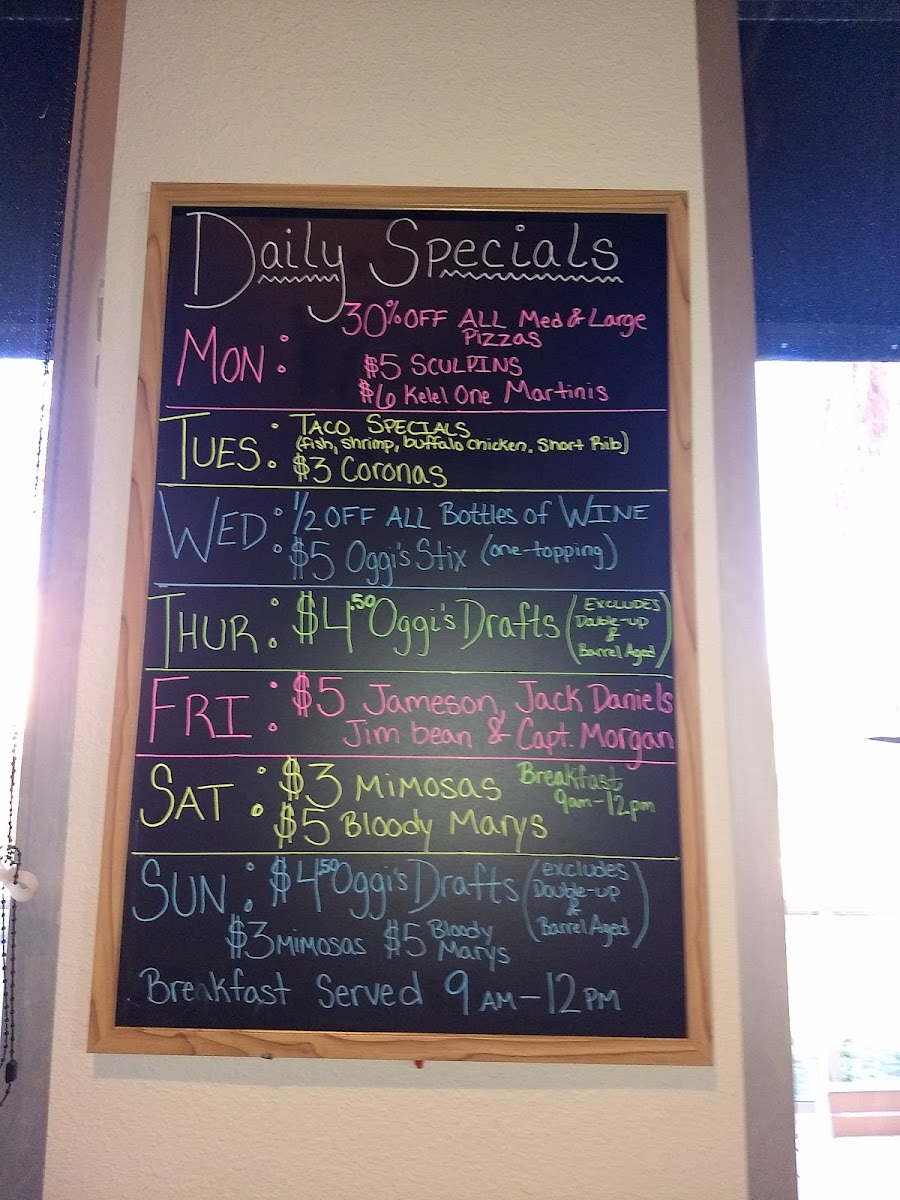 Daily Specials
MON: 30% OFF ALL Med & Large
Pizzas
$5 SCULPINS
$6 Kelel One Martinis
TUES: TACO SPECIALS
(fish, shrimp, buffalo chicken, Short Rib)
$3 Coronas
WED: 1/2 OFF ALL Bottles of WINE
$5 Oggi's Stix (one-topping)
THUR: $4.50 Oggi's Drafts (EXCLUDES
Double-up
&
Barrel Aged)
FRI: $5 Jameson, Jack Daniels
Jim bean & Capt. Morgan
SAT: $3 MIMOSAS
$5 Bloody Marys
Breakfast
9am-12pm
SUN: $4.50 Oggi's Drafts (excludes
Double-up
&
Barrel Aged)
$3 MIMOSAS $5 Bloody
Marys
Breakfast Served 9 AM-12 PM